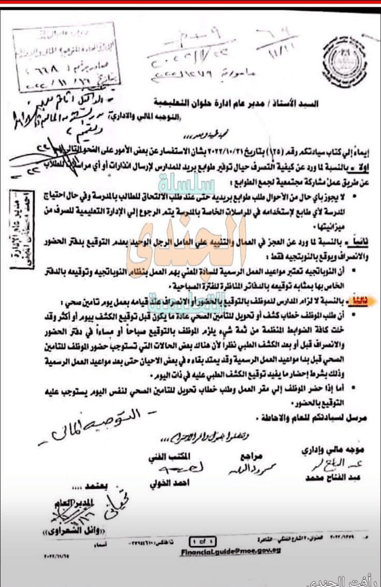 السيد الأستاذ / مدير عام إدارة حلوان التعليمية
(التوجيه المالي والإداري)
إيماءً إلى كتاب سيادتكم رقم (١٢٥) بتاريخ ٢٠٢٢/١٠/٣١ بشأن الاستفسار عن بعض الأمور على النحو التالي
أولاً – بالنسبة لما ورد عن كيفية التصرف حيال توفير طوابع بريد للمدارس لإرسال انذارات أو أي مراسلات للطلاب
عن طريق عمل مشاركة مجتمعية لجمع الطوابع :
لا يجوز بأي حال من الأحوال طلب طوابع بريدية حتى عند طلب الالتحاق للطالب بالمدرسة وفي حال احتياج
المدرسة لأي طابع لإستخدامه في المراسلات الخاصة بالمدرسة يتم الرجوع إلي الإدارة التعليمية للصرف من
ميزانيتها .
ثانياً – بالنسبة لما ورد عن العجز في العمال والتنبيه علي العامل الرجل الوحيد بعدم التوقيع بدفتر الحضور
والانصراف ويوقع بالنوبتجية فقط :
أن النوباتجية تعتبر مواعيد العمل الرسمية للسادة المعني بهم العمل بنظام النوباتجية وتوقيعه بالدفتر
الخاص بها بمثابة توقيعه بالدفاتر المناظرة للفترة الصباحية .
ثالثا – بالنسبة لا لزام المدارس للموظف بالتوقيع بالحضور أو الانصراف عند قيامه بعمل يوم تأمين صحي :
أن طلب الموظف خطاب كشف أو تحويل للتأمين الصحي عادة ما يكون قبل توقيع الكشف بيوم أو أكثر وقد
خلت كافة الضوابط المنظمة من ثمة شيء يلزم الموظف بالتوقيع صباحاً أو مساءاً في دفتر الحضور
والانصراف قبل أو بعد الكشف الطبي نظراً لأن هناك بعض الحالات التي تستوجب حضور الموظف للتأمين
الصحي قبل بدأ مواعيد العمل الرسمية وقد يمتد بقاءه في بعض الاحيان حتى بعد مواعيد العمل الرسمية
وذلك بشرط إحضار ما يفيد توقيع الكشف الطبي عليه في ذات اليوم .
أما إذا حضر الموظف إلي مقر العمل وطلب خطاب تحويل للتأمين الصحي لنفس اليوم يستوجب عليه
التوقيع بالحضور .
مرسل لسيادتكم للعلم والاحاطة .
التوجيه المالي
موجه مالي وإداري
عبد الفتاح محمد
مراجع
المكتب الفني
احمد الخولي
يعتمد
المدير العام
«وائل الشعراوي»
سلسلة
الجندي
التعليمية
1 of 1
Financial.guide@moe.gov.eg
رأفت الجندي